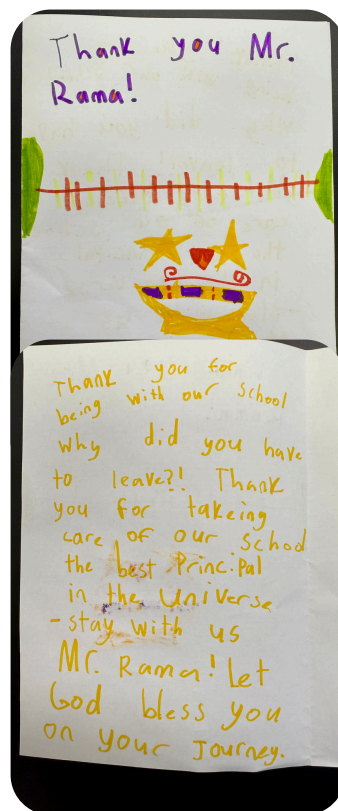 Thank you Mr.
Rama!
Thank you for
being with our school
Why did you have
to leave?! Thank
you for takeing
care of our school
the best Princ.pal
in the Universe
- stay with us
Mr. Rama! Let
God bless you
on your Journey.